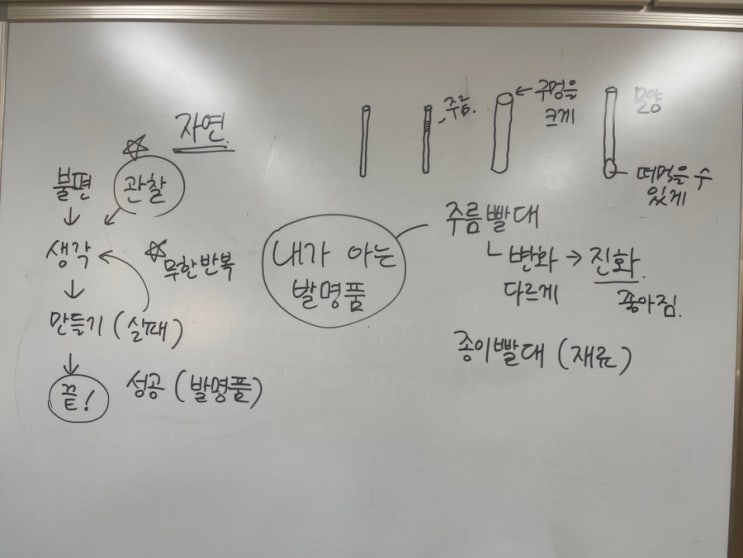 자연
☆
불편
관찰
생각
☆ 무한반복
만들기 (실패)
끝!
성공 (발명품)
내가 아는
발명품
주름
구멍을
크게
모양
떠먹을 수
있게
주름빨대
변화 → 진화
다르게
좋아짐.
종이빨대 (재료)